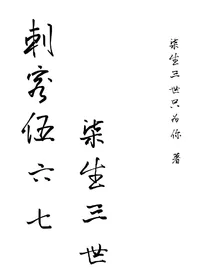 柒生三世只为你 著
刺客伍六七
柒生三世